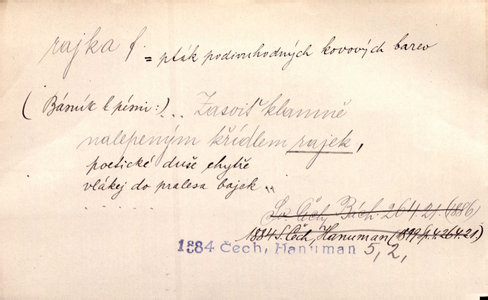 rajka f.
= pták podivuhodných kovových barev
(Básník k písni:) .. Zasviť klamně
nalepeným křídlem rajek,
poetické duše chytře
vlákej do pralesa bajek „
Sv. Čech, Bách 264.21 (1886)
1884 S. Čech, Hanuman (1899) 4.264.21)
1884 Čech, Hanuman 5, 2,